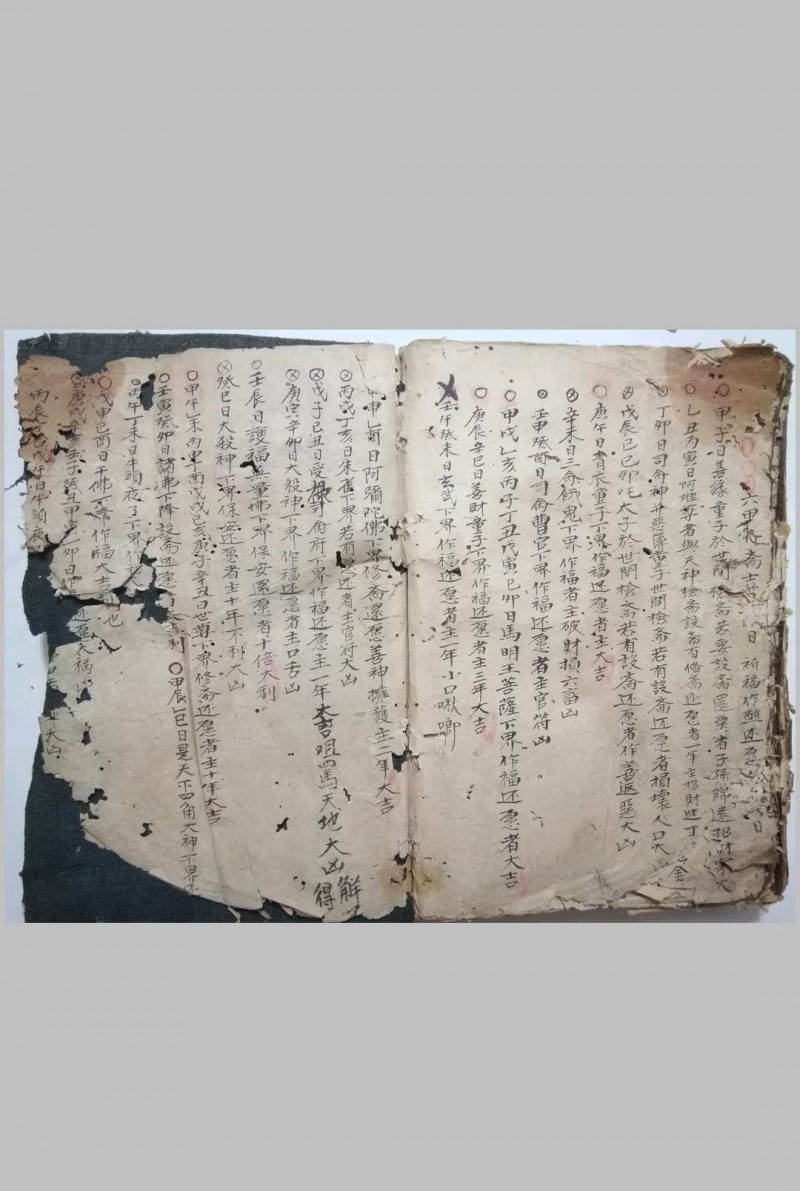 六甲 斋 日 祈福作醮还愿 日
○甲子日善缘童子於世間檢斋若要設斋還愿者子孫綿遠招財
○乙丑丙寅日阿难尊者與天神檢斋設斋有脩斋还愿者一年主招財旺丁
⊗丁卯日司命神并惡簿童子世間檢斋若有設斋还愿者損壞人口大凶
⊗戊辰己巳卯吒太子於世間檢斋若有設斋还愿者作善返惡大凶
○庚午日青衣童子下界作福还愿者主大吉
⊗辛未日三命餓鬼下界作福者主破財損六畜凶
⊗壬申癸酉日司命曹官下界作福还愿者主官符凶
○甲戌乙亥丙子丁丑戊寅己卯日馬明王菩薩下界作福还愿者大吉
○庚辰辛巳日善財童子下界作福还愿者主三年大吉
X壬午癸未日玄武下界作福还愿者主一年小口啾唧
甲申乙酉日阿彌陀佛下界修斋還愿善神擁護主二年大吉
⊗丙戌丁亥日朱雀下界若有愿还者主官府大凶
⊗戊子己丑日受 司命府下界作福还愿主一年大吉咀四馬天地大凶 解得
⊗庚寅辛卯日大殺神下界作福还愿者主口舌凶
○壬辰日護福無量佛下界保安還愿者十倍大利
⊗癸巳日大殺神下界保安还愿者主十年不利大凶
○甲午乙未丙申丁酉戊戌己亥庚子辛丑日世尊下界修斋还愿者主十年大吉
○壬寅癸卯日諸佛下降設斋还愿 大吉利 ○甲辰乙巳日是天下四角大神下界
丙午丁未日牛頭夜叉下界作
○戊申己酉日千佛下界作福大吉利也
庚戌辛亥壬子癸丑甲寅乙卯日 还愿大禍凶
丙辰丁巳戊午日牛頭夜 大凶